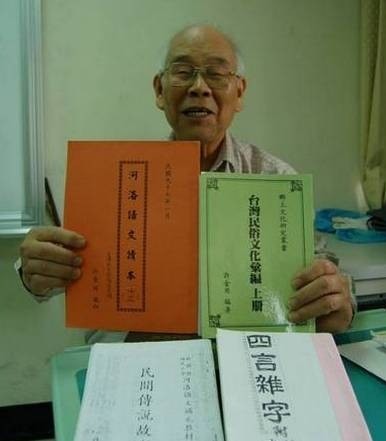 民國九十七年一月
河洛語文讀本
許金用
鄉土文化研究叢書
台灣民俗文化彙編 上册
許金用 編著
河洛語文補充教材
民間傳說故
四言雜字
附